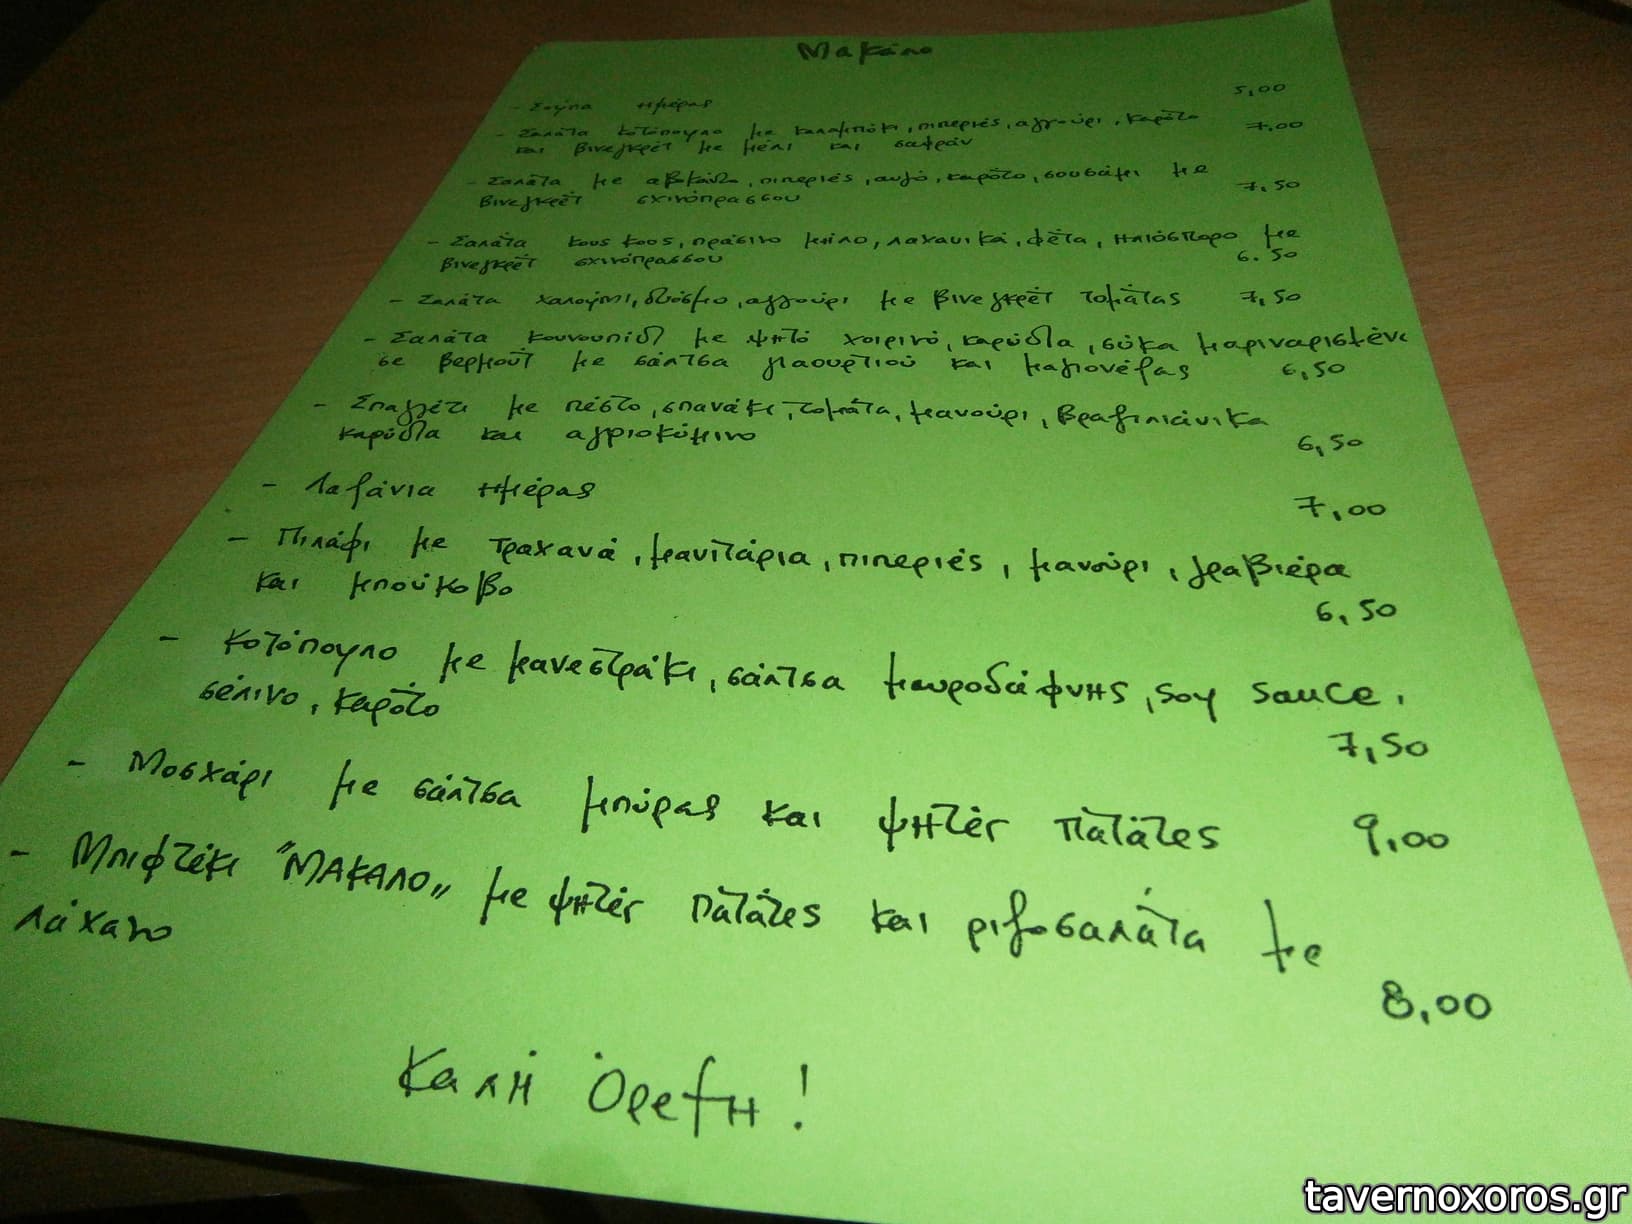 Μακάλο
- Σούπα ημέρας 5,00
- Σαλάτα κοτόπουλο με καλαμπόκι, πιπεριές, αγγούρι, καρότο 7,00
και βινεγκρέτ με μέλι και σαφράν
- Σαλάτα με αβοκάντο, πιπεριές, αυγό, καρότο, σουσάμι με 7,50
βινεγκρέτ σχινόπρασσου
- Σαλάτα κους κους, πράσινο μήλο, λαχανικά, φέτα, ηλιόσπορο με
βινεγκρέτ σχινόπρασσου 6.50
- Σαλάτα χαλούμι, δυόσμο, αγγούρι με βινεγκρέτ τομάτας 7,50
- Σαλάτα κουνουπίδι με ψητό χοιρινό, καρύδια, σύκα μαριναρισμένα
σε βερμούτ με σάλτσα γιαουρτιού και μαγιονέζας 6,50
- Σπαγγέτι με πέστο, σπανάκι, τομάτα, μανούρι, βραζιλιάνικα
καρύδια και αγριοκύμινο 6,50
- Λαζάνια ημέρας 7,00
- Πιλάφι με τραχανά, μανιτάρια, πιπεριές, μανούρι, γραβιέρα
και μπούκοβο 6,50
- Κοτόπουλο με μανεστράκι, σάλτσα μαυροδάφνης, soy sauce,
σέλινο, καρότο 7,50
- Μοσχάρι με σάλτσα μπύρας και ψητές πατάτες 9,00
- Μπιφτέκι "ΜΑΚΑΛΟ" με ψητές πατάτες και ριζοσαλάτα με
λάχανο 8,00
Καλή Όρεξη!
tavernoxoros.gr